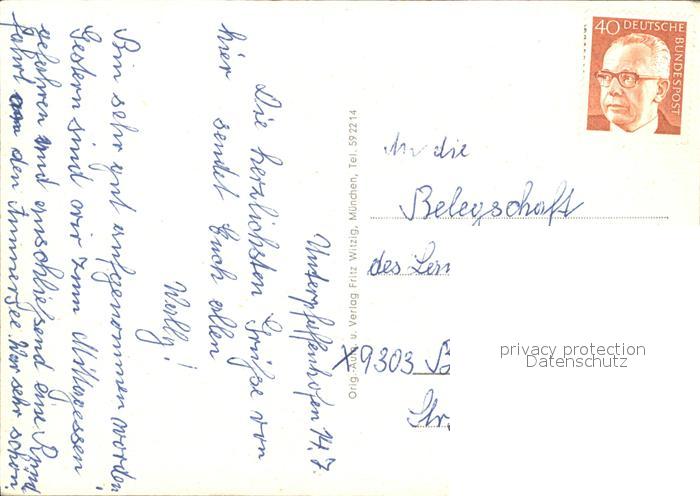 Unterpfaffenhofen 14.7.
Die herzlichsten Grüße von
hier sendet Euch allen
Wolly!
Bin sehr gut aufgenommen worden
Gestern sind wir zum Mittagessen
gefahren und anschließend eine Rund
fahrt um den Ammersee. War sehr schön.
Orig.-Aufn. u. Verlag Fritz Witzig, München, Tel. 592214
40 DEUTSCHE BUNDESPOST
An die
Belegschaft
des
X 9303
Str.
privacy protection
Datenschutz